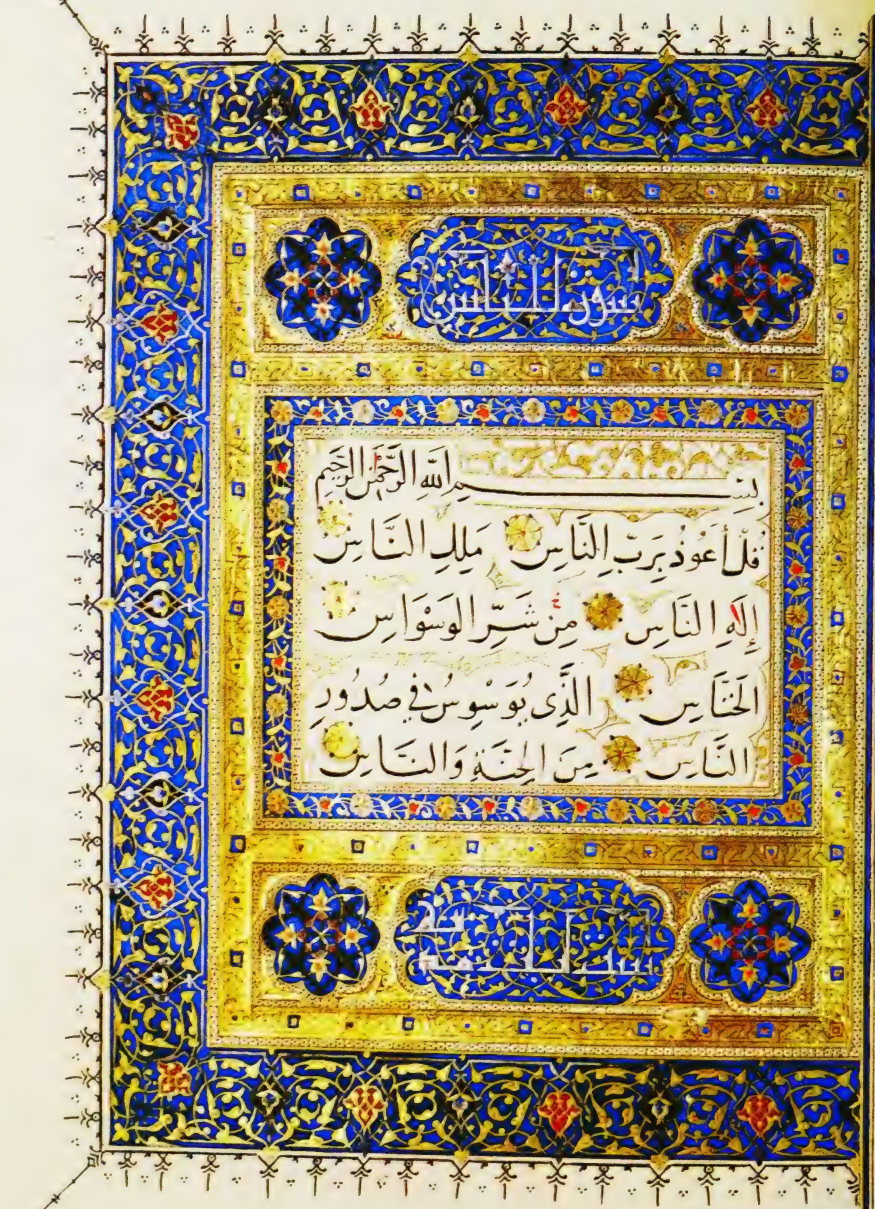 سورة الناس
بِسْمِ اللَّهِ الرَّحْمَٰنِ الرَّحِيمِ
قُلْ أَعُوذُ بِرَبِّ النَّاسِ مَلِكِ النَّاسِ
إِلَٰهِ النَّاسِ مِنْ شَرِّ الْوَسْوَاسِ
الْخَنَّاسِ الَّذِي يُوَسْوِسُ فِي صُدُورِ
النَّاسِ مِنَ الْجِنَّةِ وَالنَّاسِ